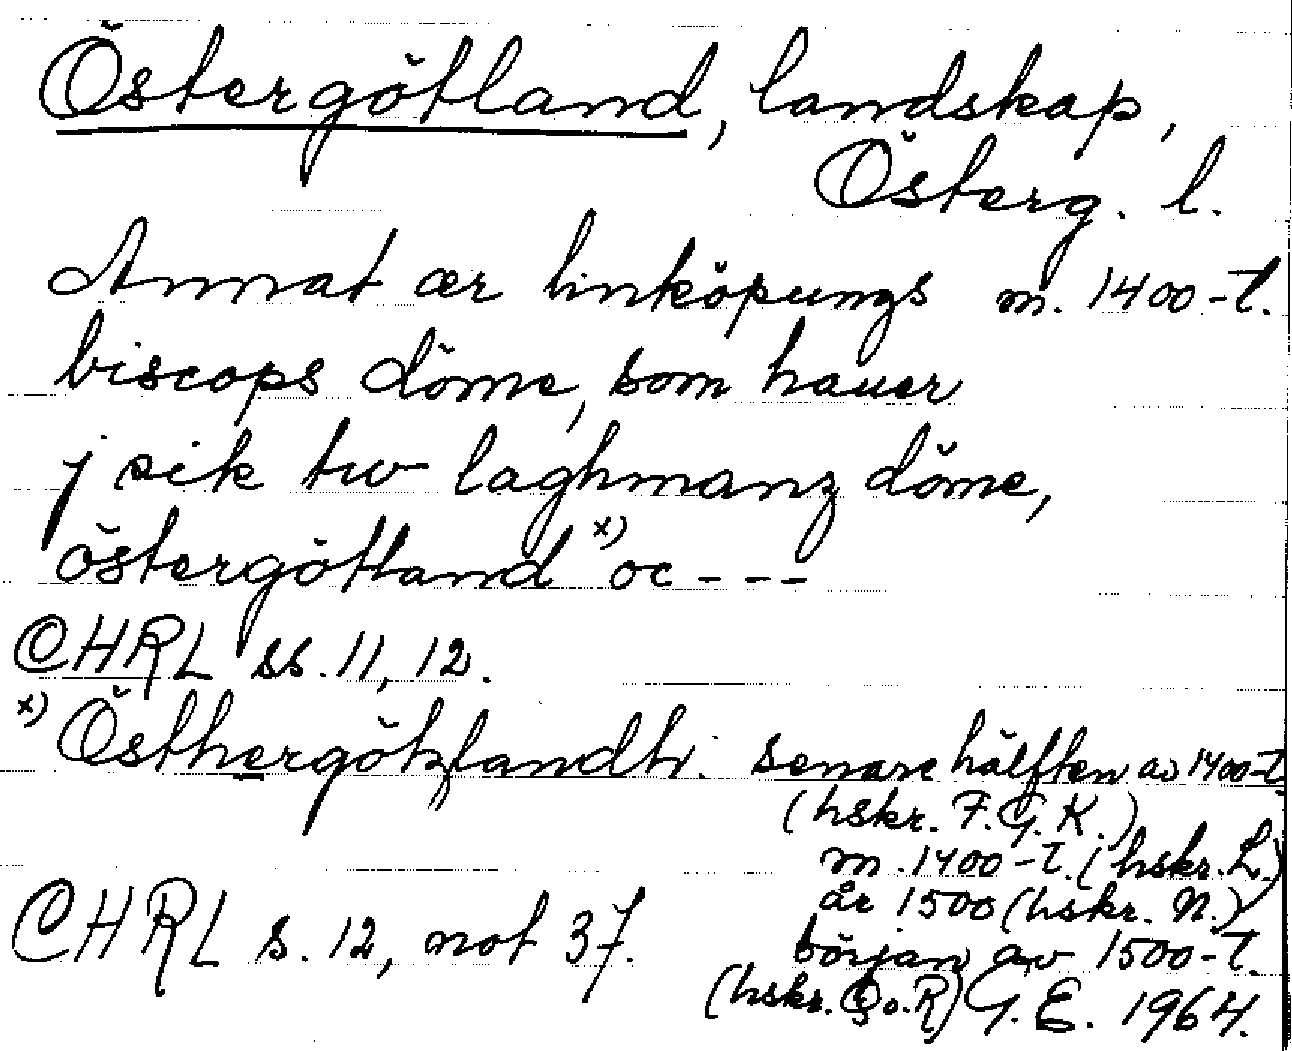 Östergötland, landskap,
Österg. l.
Annat ær linköpungs m. 1400-t.
biscops döme, som hauer
j sik tw laghmanz döme,
östergötland x) oc - - -
CHRL ss. 11, 12.
x) Östhergötzlandh. senare hälften av 1400-t
(hskr. F. G. K.)
m. 1400-t. (hskr. L.)
år 1500 (hskr. N.)
CHRL s. 12, not 37. början av 1500-t.
(hskr. Q o. R) G. E. 1964.